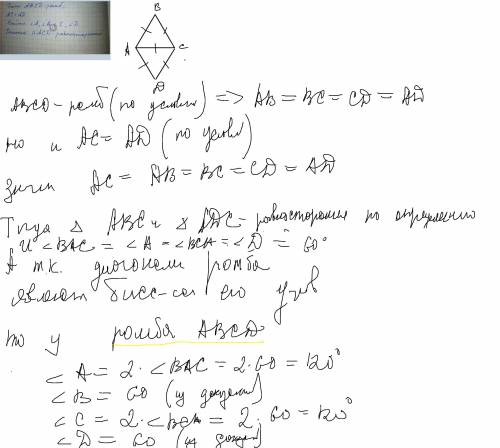 Дано: ABCD-ромб.
AC=AD
B
A
C
D
ABCD-ромб (по условию) => AB = BC = CD = AD
но и AC = AD (по услов)
Значи AC = AB = BC = CD = AD
Тогда △ ABC и △ ADC - равносторонние по определению
и <BAC = <A = <BCA = <D = 60°
А т.к. диагонали ромба
являют бисс-сы его углов
то у ромба ABCD
<A = 2·<BAC = 2·60 = 120°
<B = 60 (из доказан)
<C = 2·<BCA = 2·60 = 120°
<D = 60 (из доказан)